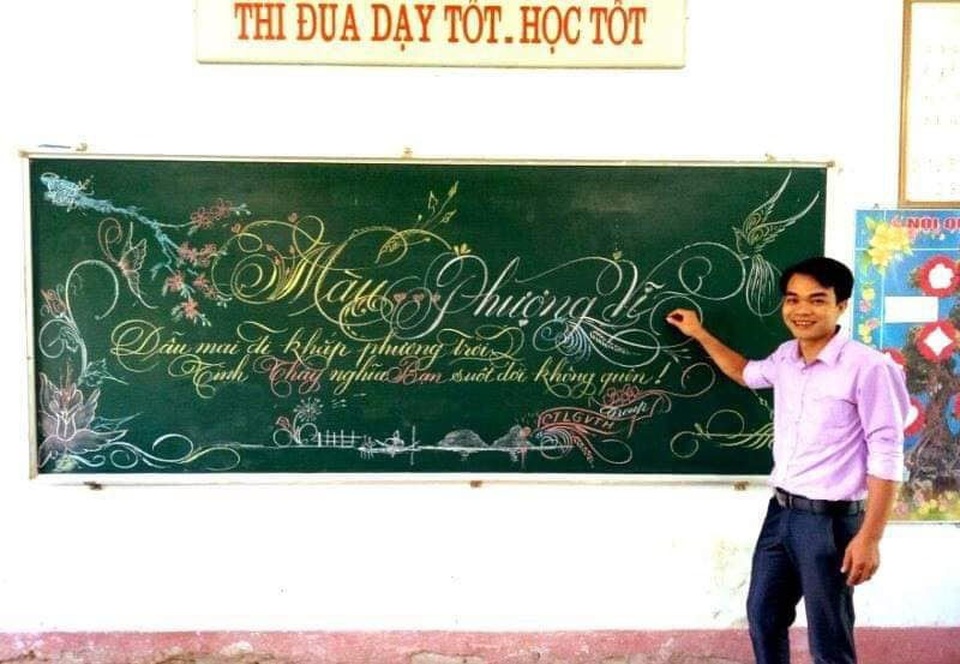 THI ĐUA DẠY TỐT - HỌC TỐT
NỘI QU
Màu Phượng Vĩ
Dẫu mai đi khắp phương trời
Tình Thầy nghĩa Bạn suốt đời không quên!
Group
TLGVTH